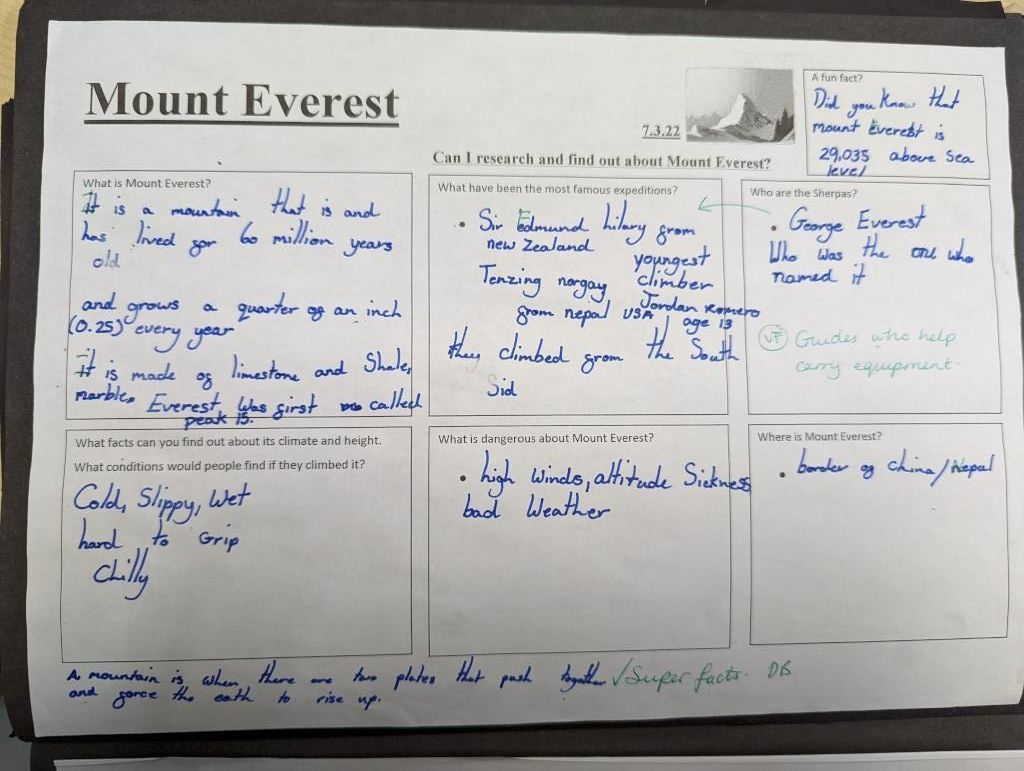 Mount Everest
7.3.22
Can I research and find out about Mount Everest?
A fun fact?
Did you know that
mount Everest is
29,035 above sea
level
What is Mount Everest?
It is a mountain that is and
has lived for 60 million years
old
and grows a quarter of an inch
(0.25) every year
it is made of limestone and Shale,
marble. Everest was first called
peak 15.
What have been the most famous expeditions?
• Sir Edmund hilary from
new Zealand
Tenzing norgay
from nepal
youngest
climber
Jordan Romero
USA age 13
they climbed from the South
Sid
Who are the Sherpas?
• George Everest
Who was the one who
named it
VF Guides who help
carry equipment.
What facts can you find out about its climate and height.
What conditions would people find if they climbed it?
Cold, Slippy, Wet
hard to Grip
Chilly
What is dangerous about Mount Everest?
• high winds, altitude Sickness
bad Weather
Where is Mount Everest?
• border of china/Nepal
A mountain is when there are two plates that push together
and force the earth to rise up.
✓ Super facts. DB